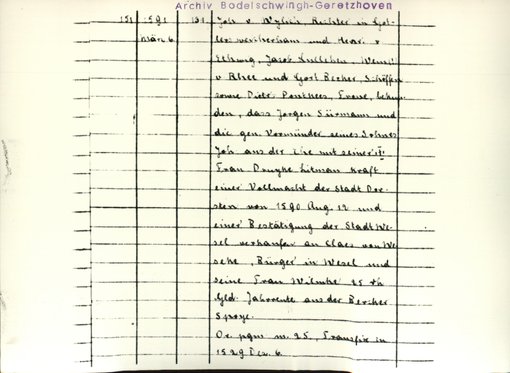 Archiv Bodelschwingh-Geretzhoven
151 1591 151 Joh v. Wylich Richter in Got-
März 6. terswickerham und Henr. v
Jacob
v Rhee und Gort Becher, Schöffen
sowie Dietr Ponthees, Frone, bekun-
den, dass Jorgen Sürmann und
die gen Vormünder seines Sohnes
Joh aus der Ehe mit seiner II.
Frau Druyke Litman kraft
einer Vollmacht der Stadt Dor-
sten von 1590 Aug. 12 und
einer Bestätigung der Stadt We-
sel verkaufen an Claes von We-
seke, Bürger in Wesel und
seine Frau Wilmke 25 th
Geld. Jahrrente aus der Bercher
Spoye.
Or. pgm m. 2S., Transfix in
1529 Dez. 6.